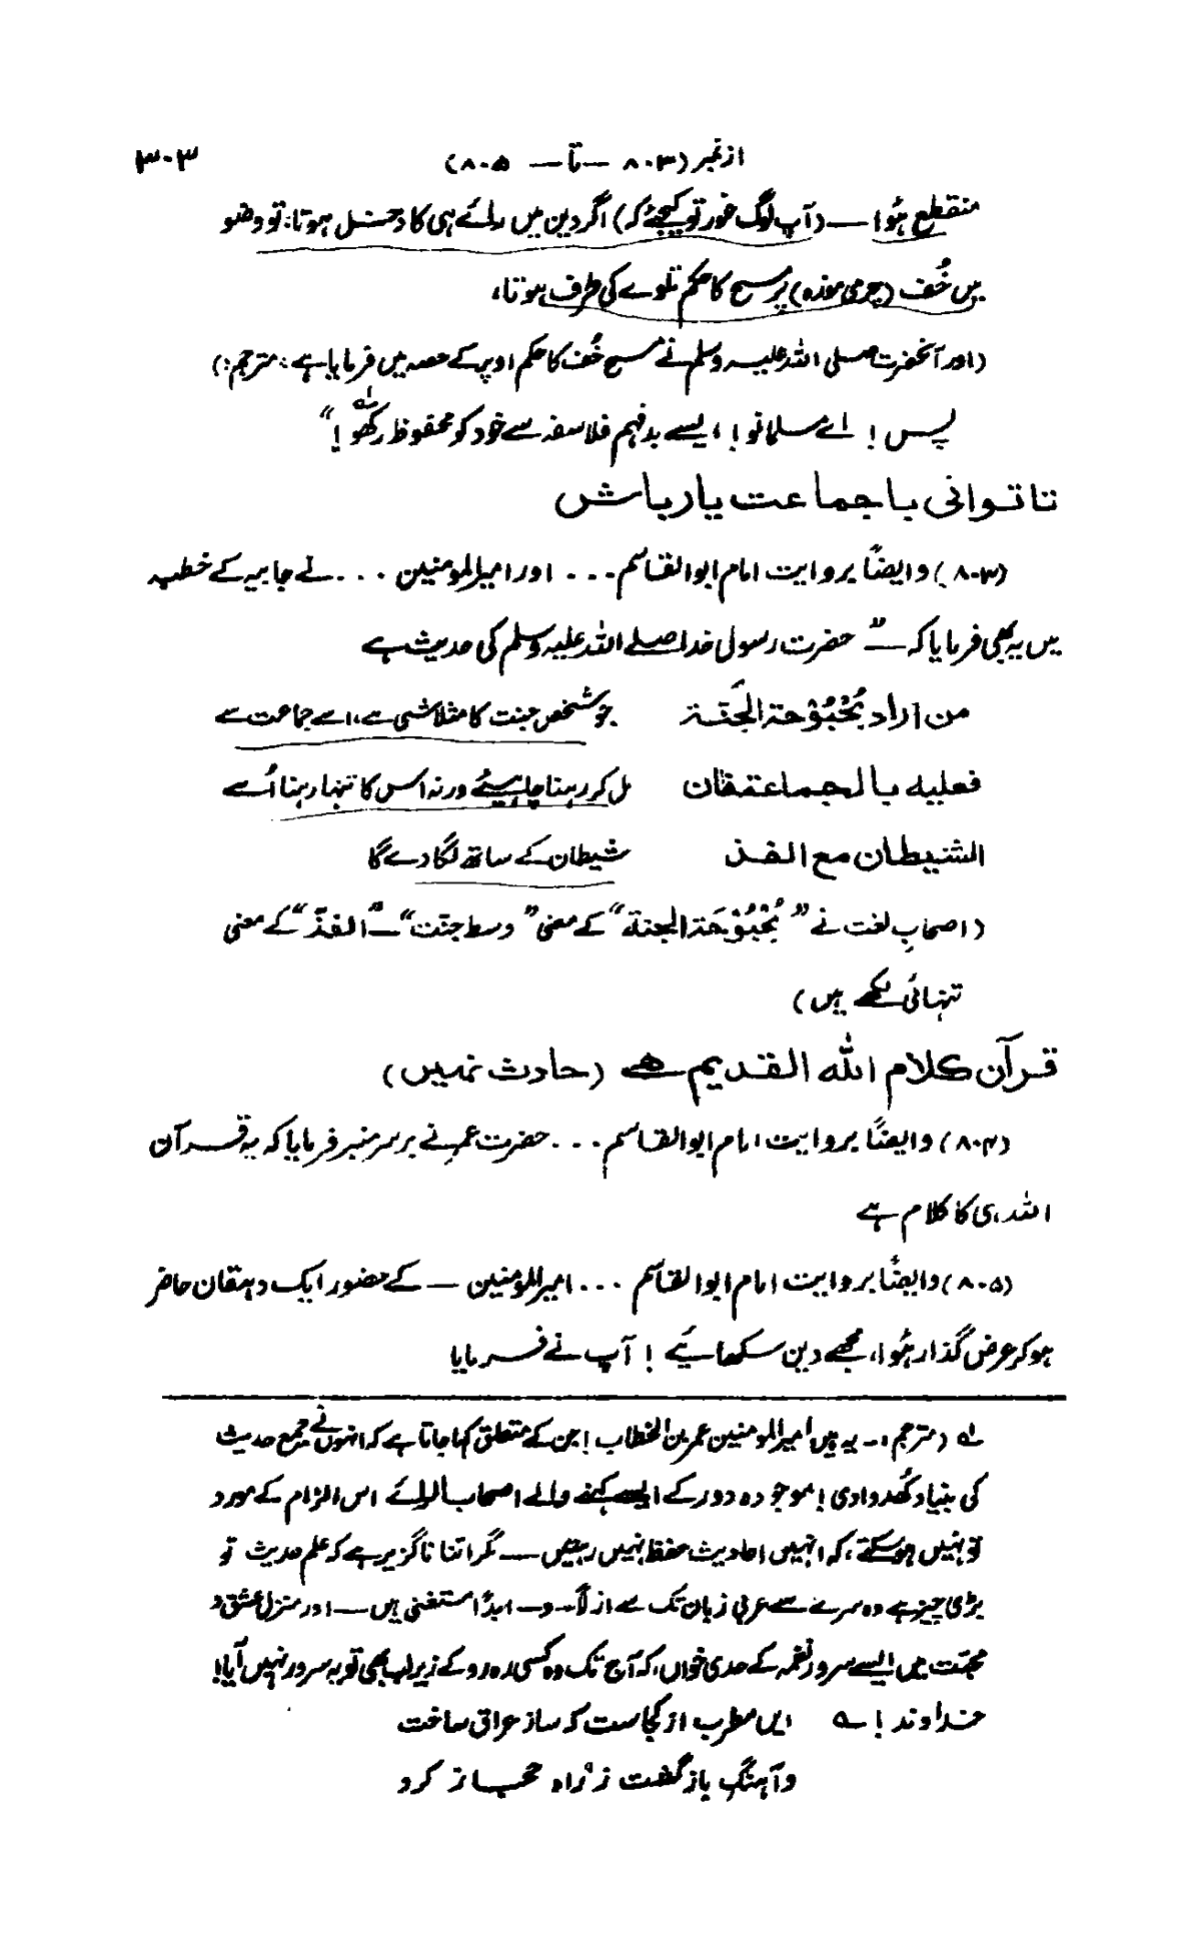 از نمبر (۸۰۳ — تا — ۸۰۵) ۳۰۳
منقطع ہُوا — (آپ لوگ غور تو کیجئے کہ) اگر دین میں رائے ہی کا دخل ہوتا: تو وضو
میں خُف (چرمی موزہ) پر مسح کا حکم تلوے کی طرف ہوتا،
(اور آنحضرت صلی اللہ علیہ وسلم نے مسح خُف کا حکم اوپر کے حصہ میں فرمایا ہے: مترجم:)
پس! اے مسلمانو! ایسے بدفہم فلاسفہ سے خود کو محفوظ رکھو!"
تا توانی با جماعت یار باش
(۸۰۳) وایضًا بروایت امام ابوالقاسم ... اور امیرالمومنین ... نے جابیہ کے خطبہ
میں یہ بھی فرمایا کہ — " حضرت رسول خدا صلے اللہ علیہ وسلم کی حدیث ہے
من اراد بُحْبُوْحة الجَنّة جو شخص جنت کا متلاشی ہے، اسے جماعت سے
فعليه بالجماعة فان مل کر رہنا چاہیئے ورنہ اس کا تنہا رہنا اُسے
الشيطان مع الفذ شیطان کے ساتھ لگا دے گا
(اصحابِ لغت نے "بُحْبُوْحَة الجنة" کے معنی "وسط جنت" — "الفذّ" کے معنی
تنہائی لکھے ہیں)
قرآن کلام اللہ القدیم ہے (حادث نہیں)
(۸۰۴) وایضًا بروایت امام ابوالقاسم ... حضرت عمرؓ نے برسرِ منبر فرمایا کہ یہ قرآن
اللہ ہی کا کلام ہے
(۸۰۵) وایضًا بروایت امام ابوالقاسم ... امیرالمومنین — کے حضور ایک دہقان حاضر
ہو کر عرض گذار ہُوا، مجھے دین سکھائیے! آپ نے فرمایا
لے (مترجم:- یہ ہیں امیرالمومنین عمر بن الخطاب! جن کے متعلق کہا جاتا ہے کہ انہوں نے جمع حدیث
کی بنیاد کُھدوا دی! موجودہ دور کے ایسے کہنے والے اصحاب الرائے اس الزام کے مورد
تو نہیں ہو سکتے، کہ انہیں احادیث حفظ نہیں رہیں — مگر اتنا ناگزیر ہے کہ علم حدیث تو
بڑی چیز ہے وہ سرے سے عربی زبان تک سے ازلًا - و - ابدًا مستغنی ہیں — اور منزل عشق و
محبت میں ایسے سرود نغمہ کے حدی خواں، کہ آج تک وہ کسی رہ رو کے زیر لب بھی تو یہ سرود نہیں آیا!
خداوندا! ؎ ایں مطرب از کجاست کہ ساز عراق ساخت
و آہنگِ بازگشت ز راہ حجاز کرد